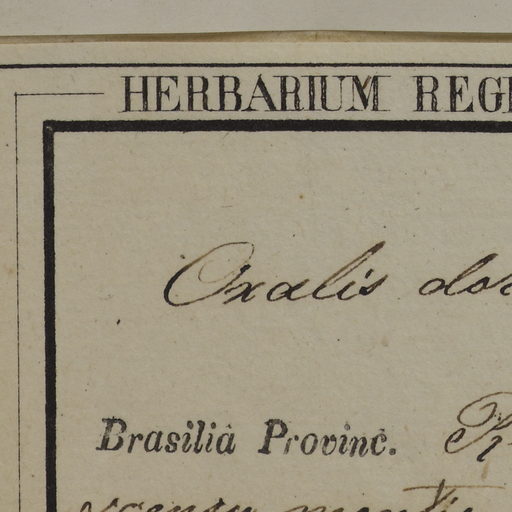 HERBARIUM REGI
Oxalis dor
Brasiliâ Provinc. R